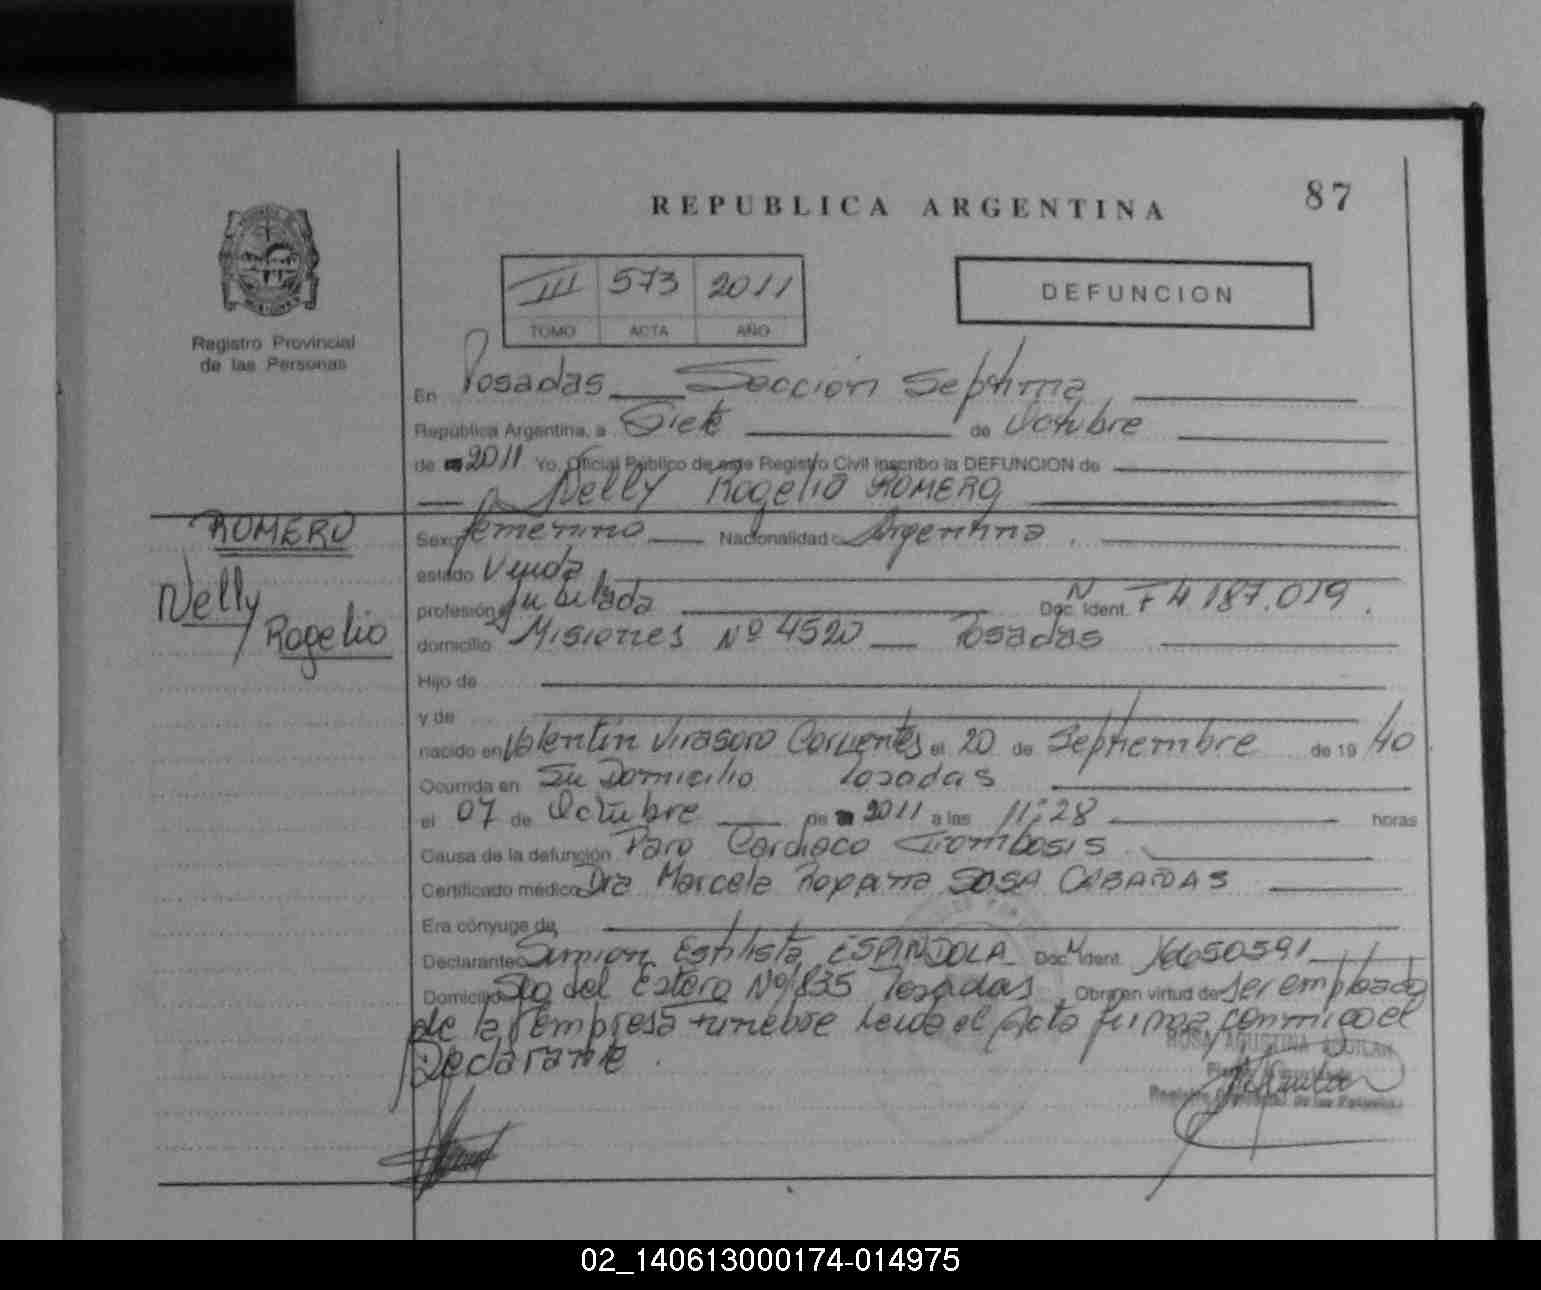 REPUBLICA ARGENTINA
87
III 573 2011
TOMO ACTA AÑO
DEFUNCION
Registro Provincial
de las Personas
En Posadas Sección Septima
República Argentina, a Siete de Octubre
de 2011 Yo, Oficial Público de este Registro Civil inscribo la DEFUNCION de
Nelly Rogelio ROMERO
ROMERO
Nelly
Rogelio
Sexo femenino Nacionalidad Argentina
estado Viuda
profesión Jubilada Doc. Ident. F 4187.019.
domicilio Misiones Nº 4520 Posadas
Hijo de
y de
nacido en Valentin Virasoro Corrientes el 20 de Septiembre de 19 40
Ocurrida en Su Domicilio Posadas
el 07 de Octubre de 2011 a las 11:28 horas
Causa de la defunción Paro Cardiaco Trombosis
Certificado médico Dra Marcela SOSA CABAÑAS
Era cónyuge de
Declarante ESPINDOLA Doc. Ident. M 16650591
Domicilio Sgo del Estero Nº 1835 Posadas Obra en virtud de ser empleado
de la Empresa funebre leida el Acta firma conmigo el
Declarante.
ROSA AGUSTINA AGUILAR
Registro Provincial de las Personas
02_140613000174-014975